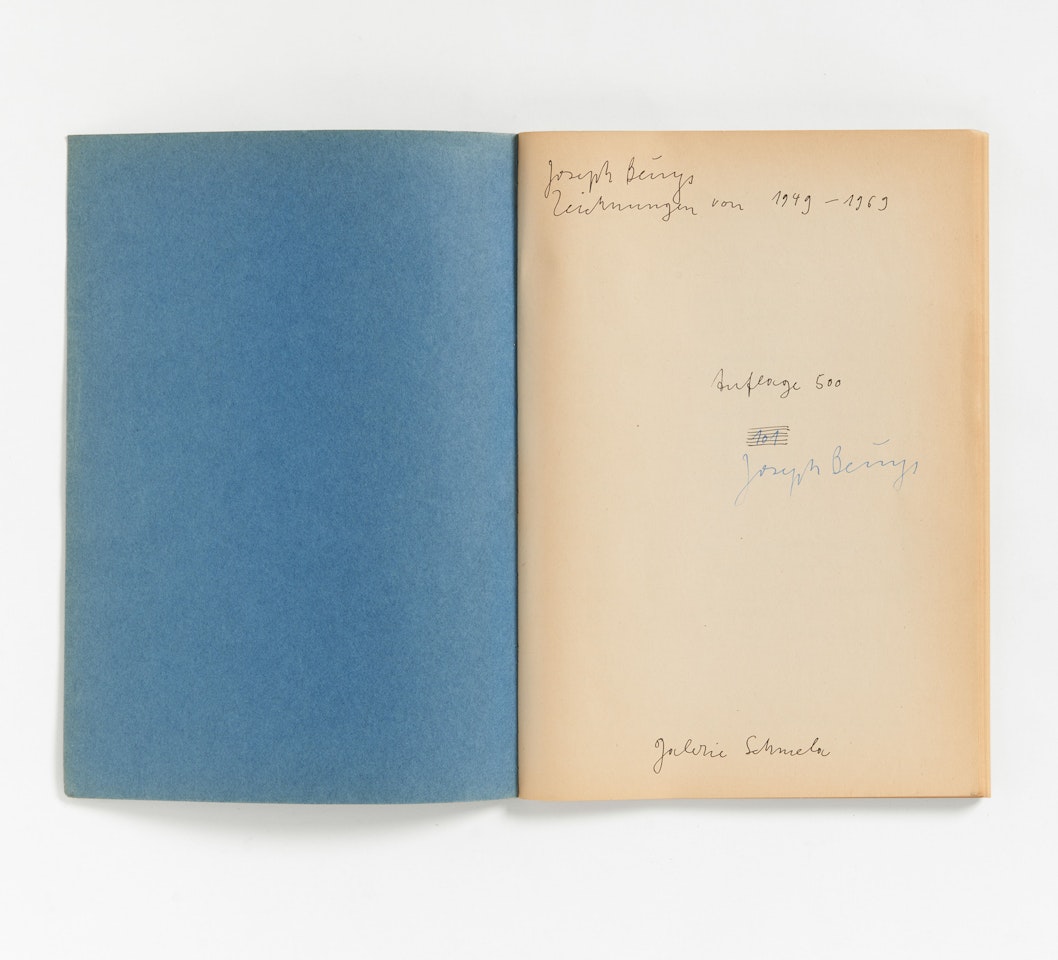 Joseph Beuys
Zeichnungen von 1949 – 1969
Auflage 500
101
Joseph Beuys
Galerie Schmela